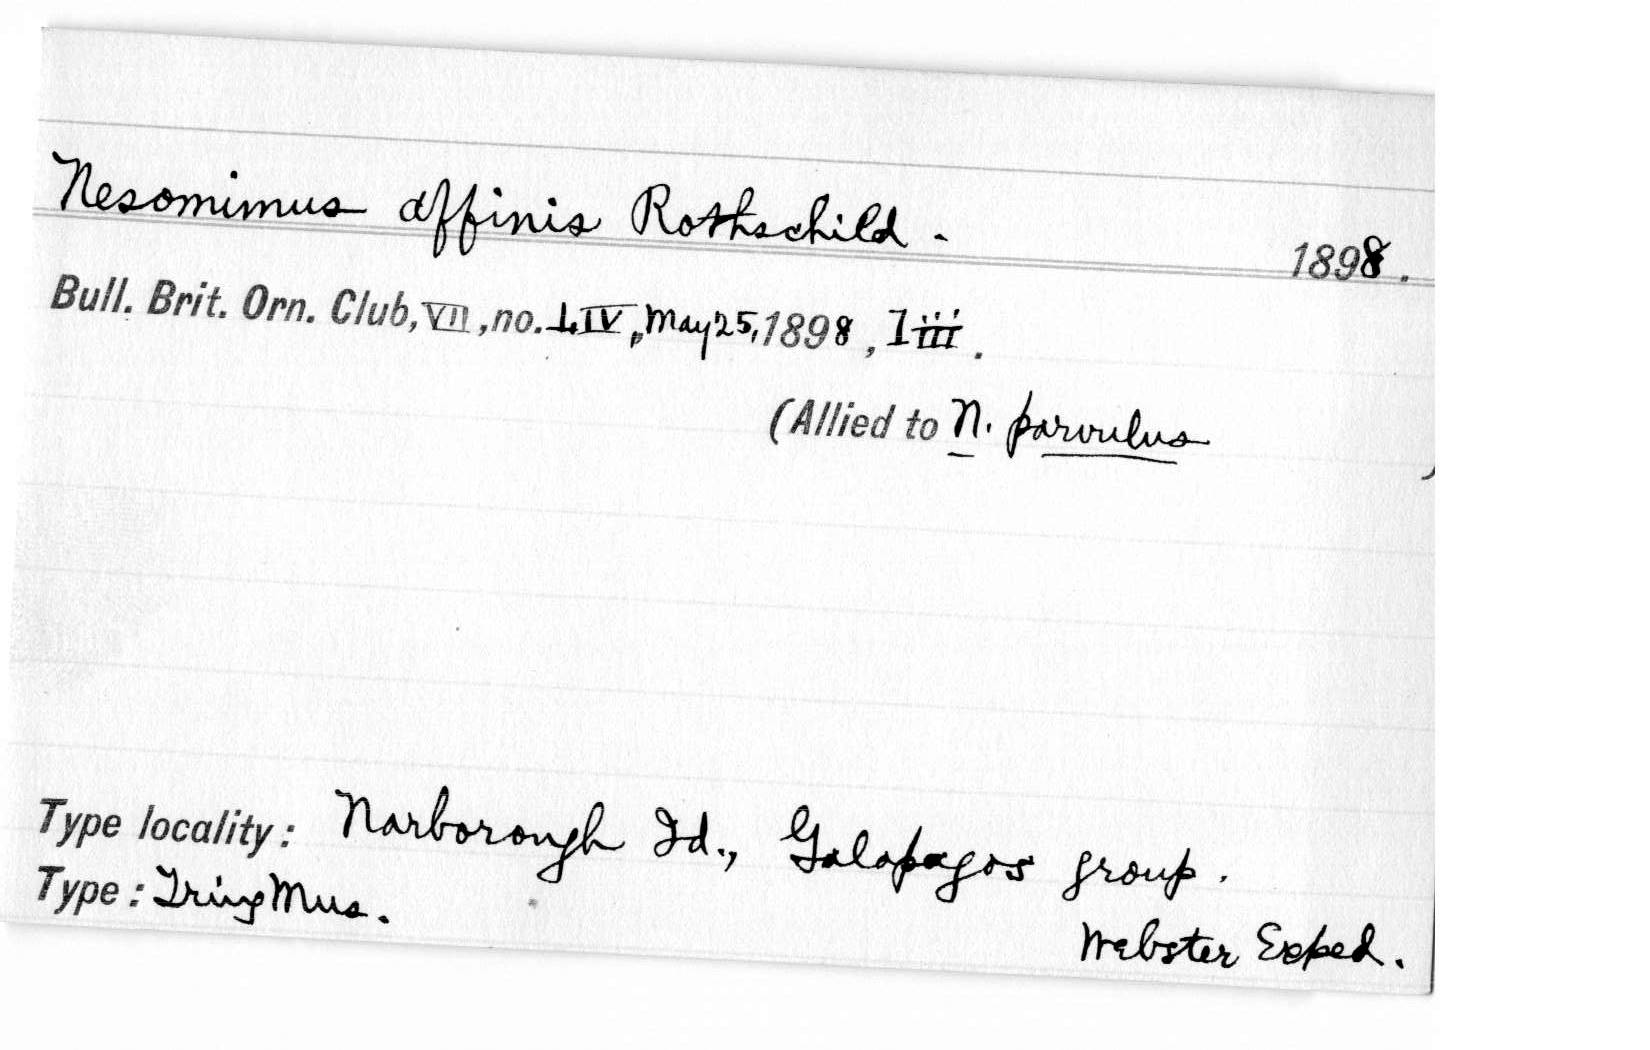 Nesomimus affinis Rothschild. 1898.
Bull. Brit. Orn. Club, VII, no. LIV, May 25, 1898, liii.
(Allied to N. parvulus )
Type locality: Narborough Id., Galapagos group.
Type: Tring Mus.
Webster Exped.